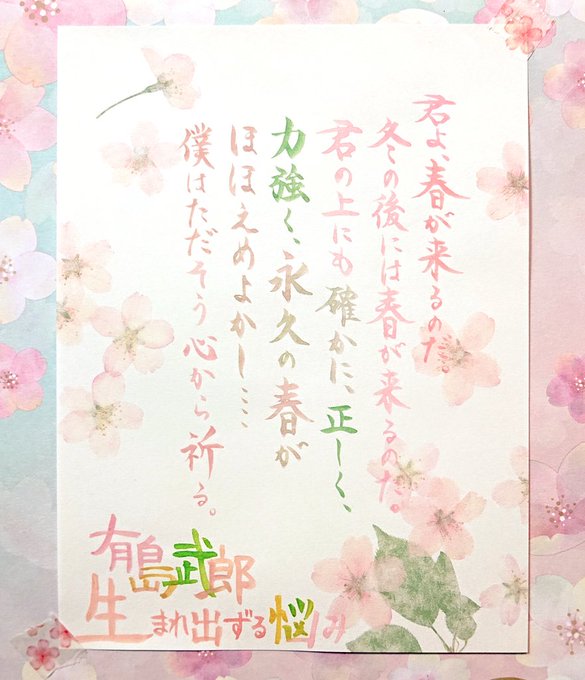 君よ、春が来るのだ。
冬の後には春が来るのだ。
君の上にも確かに、正しく、
力強く、永久の春が
ほほえめよかし……
僕はただそう心から祈る。
有島武郎
生まれ出ずる悩み